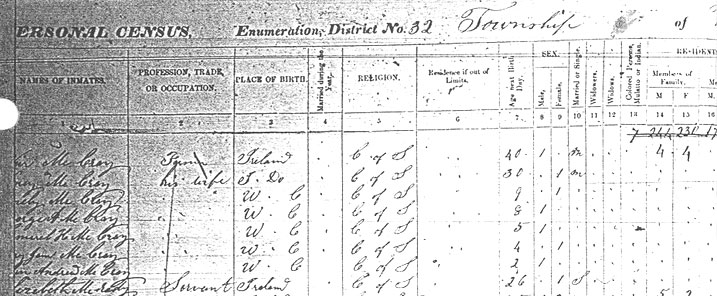 ERSONAL CENSUS, Enumeration, District No. 32 Township of
NAMES OF INMATES. PROFESSION, TRADE, OR OCCUPATION. PLACE OF BIRTH. Married during the Year. RELIGION. Residence if out of Limits. Age next Birth Day. SEX. Male. Female. Married or Single. Widowers. Widows. Colored Persons, Mulatto or Indian. RESIDENT
Members of Family. M F M
1 2 3 4 5 6 7 8 9 10 11 12 13 14 15 16
7 244 236 17
Mc Cray Ireland C of S 40 1 m 4 4
Mc Cray his wife I. Do C of S 30 1 m
Mc Cray W C C of S 9 1
Mc Cray W C C of S 8 1
Mc Cray W C C of S 5 1
Mc Cray W C C of S 4 1
Andrew Mc Cray W C C of S 2 1
Servant Ireland C of S 26 1 S